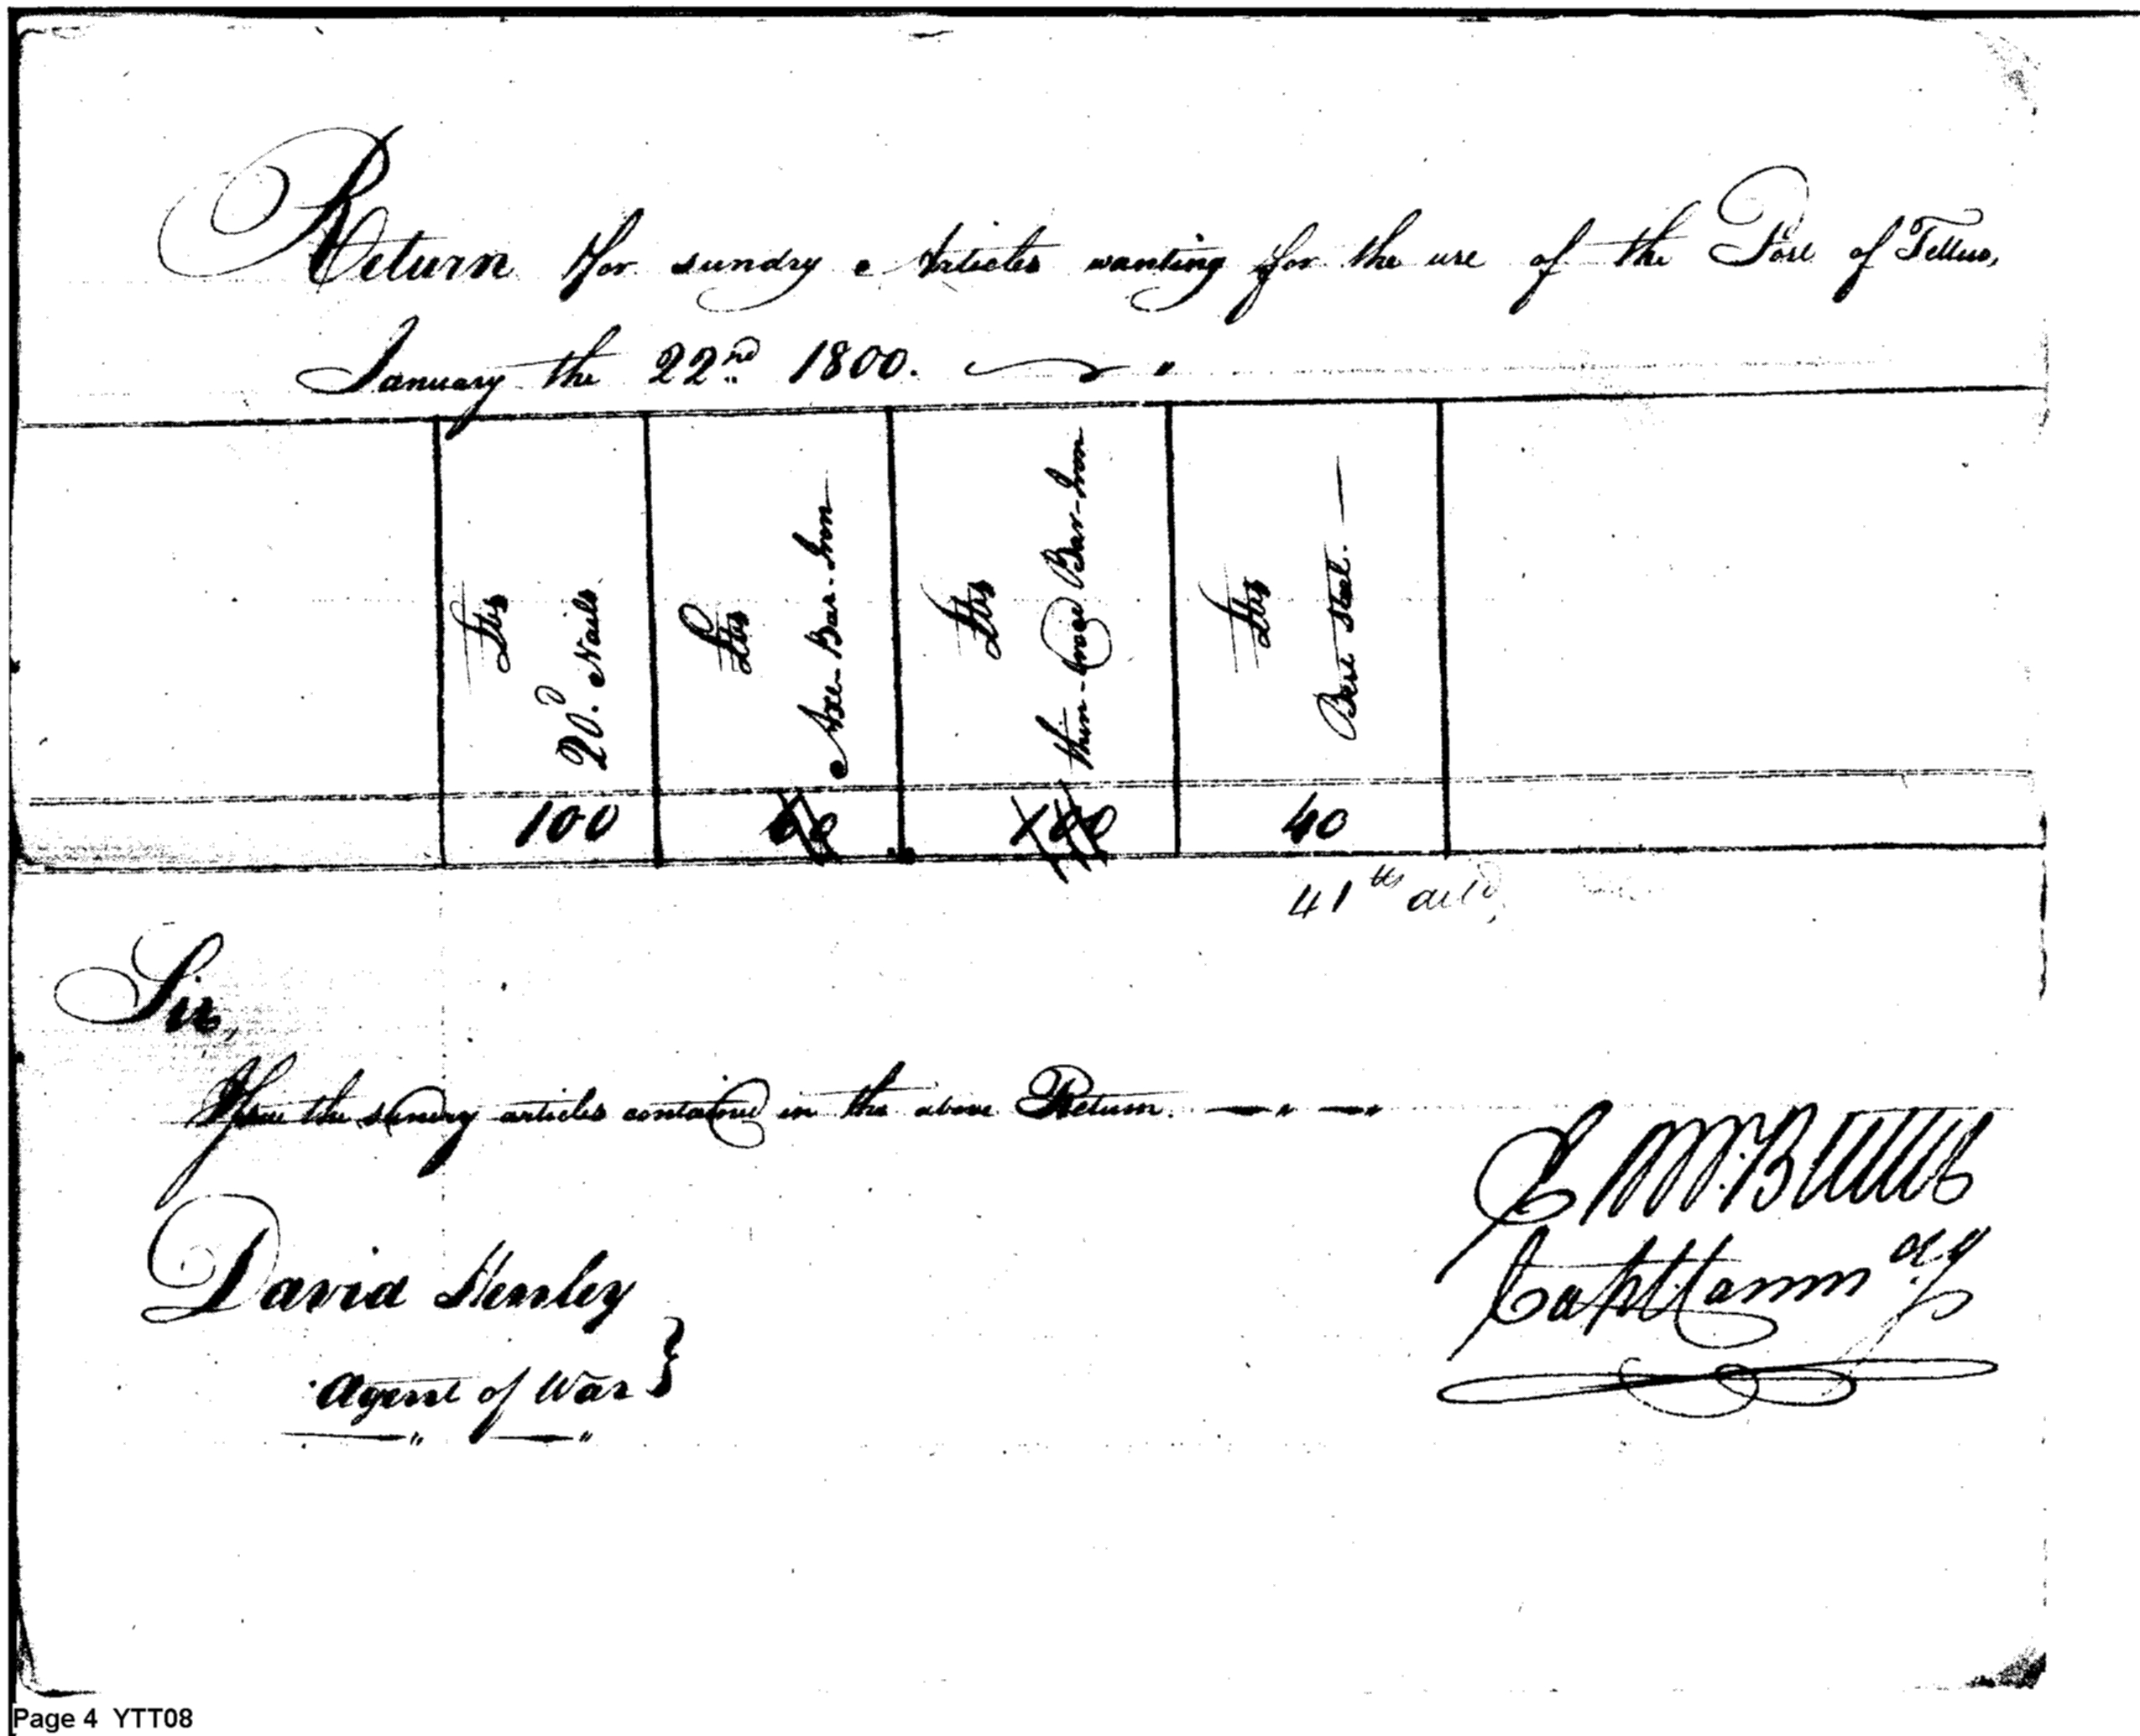 Return for sundry Articles wanting for the use of the Post of Tellico,
January the 22nd 1800.
lbs 20d. Nails
lbs Axe-Bar-Iron
lbs thin-broad Bar-Iron
lbs Best Steel.
100 60 100 40
41 lbs deld,
Sir,
Issue the sundry articles contained in the above Return.
E W Butler
Capt Comm dg
David Henley
Agent of War
Page 4 YTT08